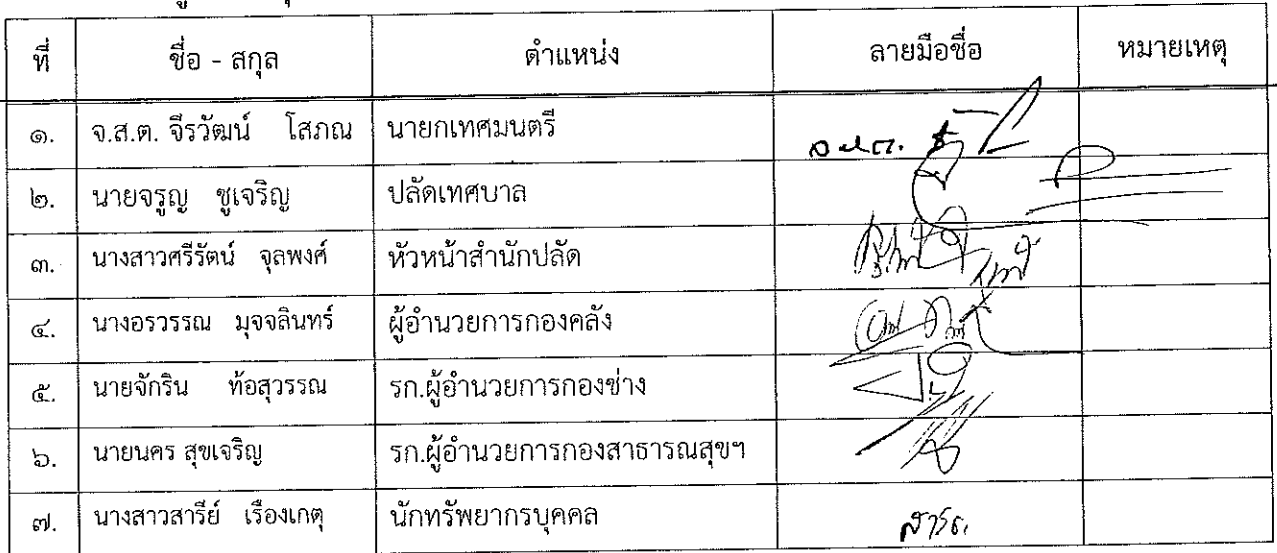 ที่ ชื่อ - สกุล ตำแหน่ง ลายมือชื่อ หมายเหตุ
๑. จ.ส.ต. จีรวัฒน์ โสภณ นายกเทศมนตรี จ.ส.ต.
๒. นายจรูญ ชูเจริญ ปลัดเทศบาล
๓. นางสาวศรีรัตน์ จุลพงศ์ หัวหน้าสำนักปลัด
๔. นางอรวรรณ มุจจลินทร์ ผู้อำนวยการกองคลัง
๕. นายจักริน ท้อสุวรรณ รก.ผู้อำนวยการกองช่าง
๖. นายนคร สุขเจริญ รก.ผู้อำนวยการกองสาธารณสุขฯ
๗. นางสาวสารีย์ เรืองเกตุ นักทรัพยากรบุคคล